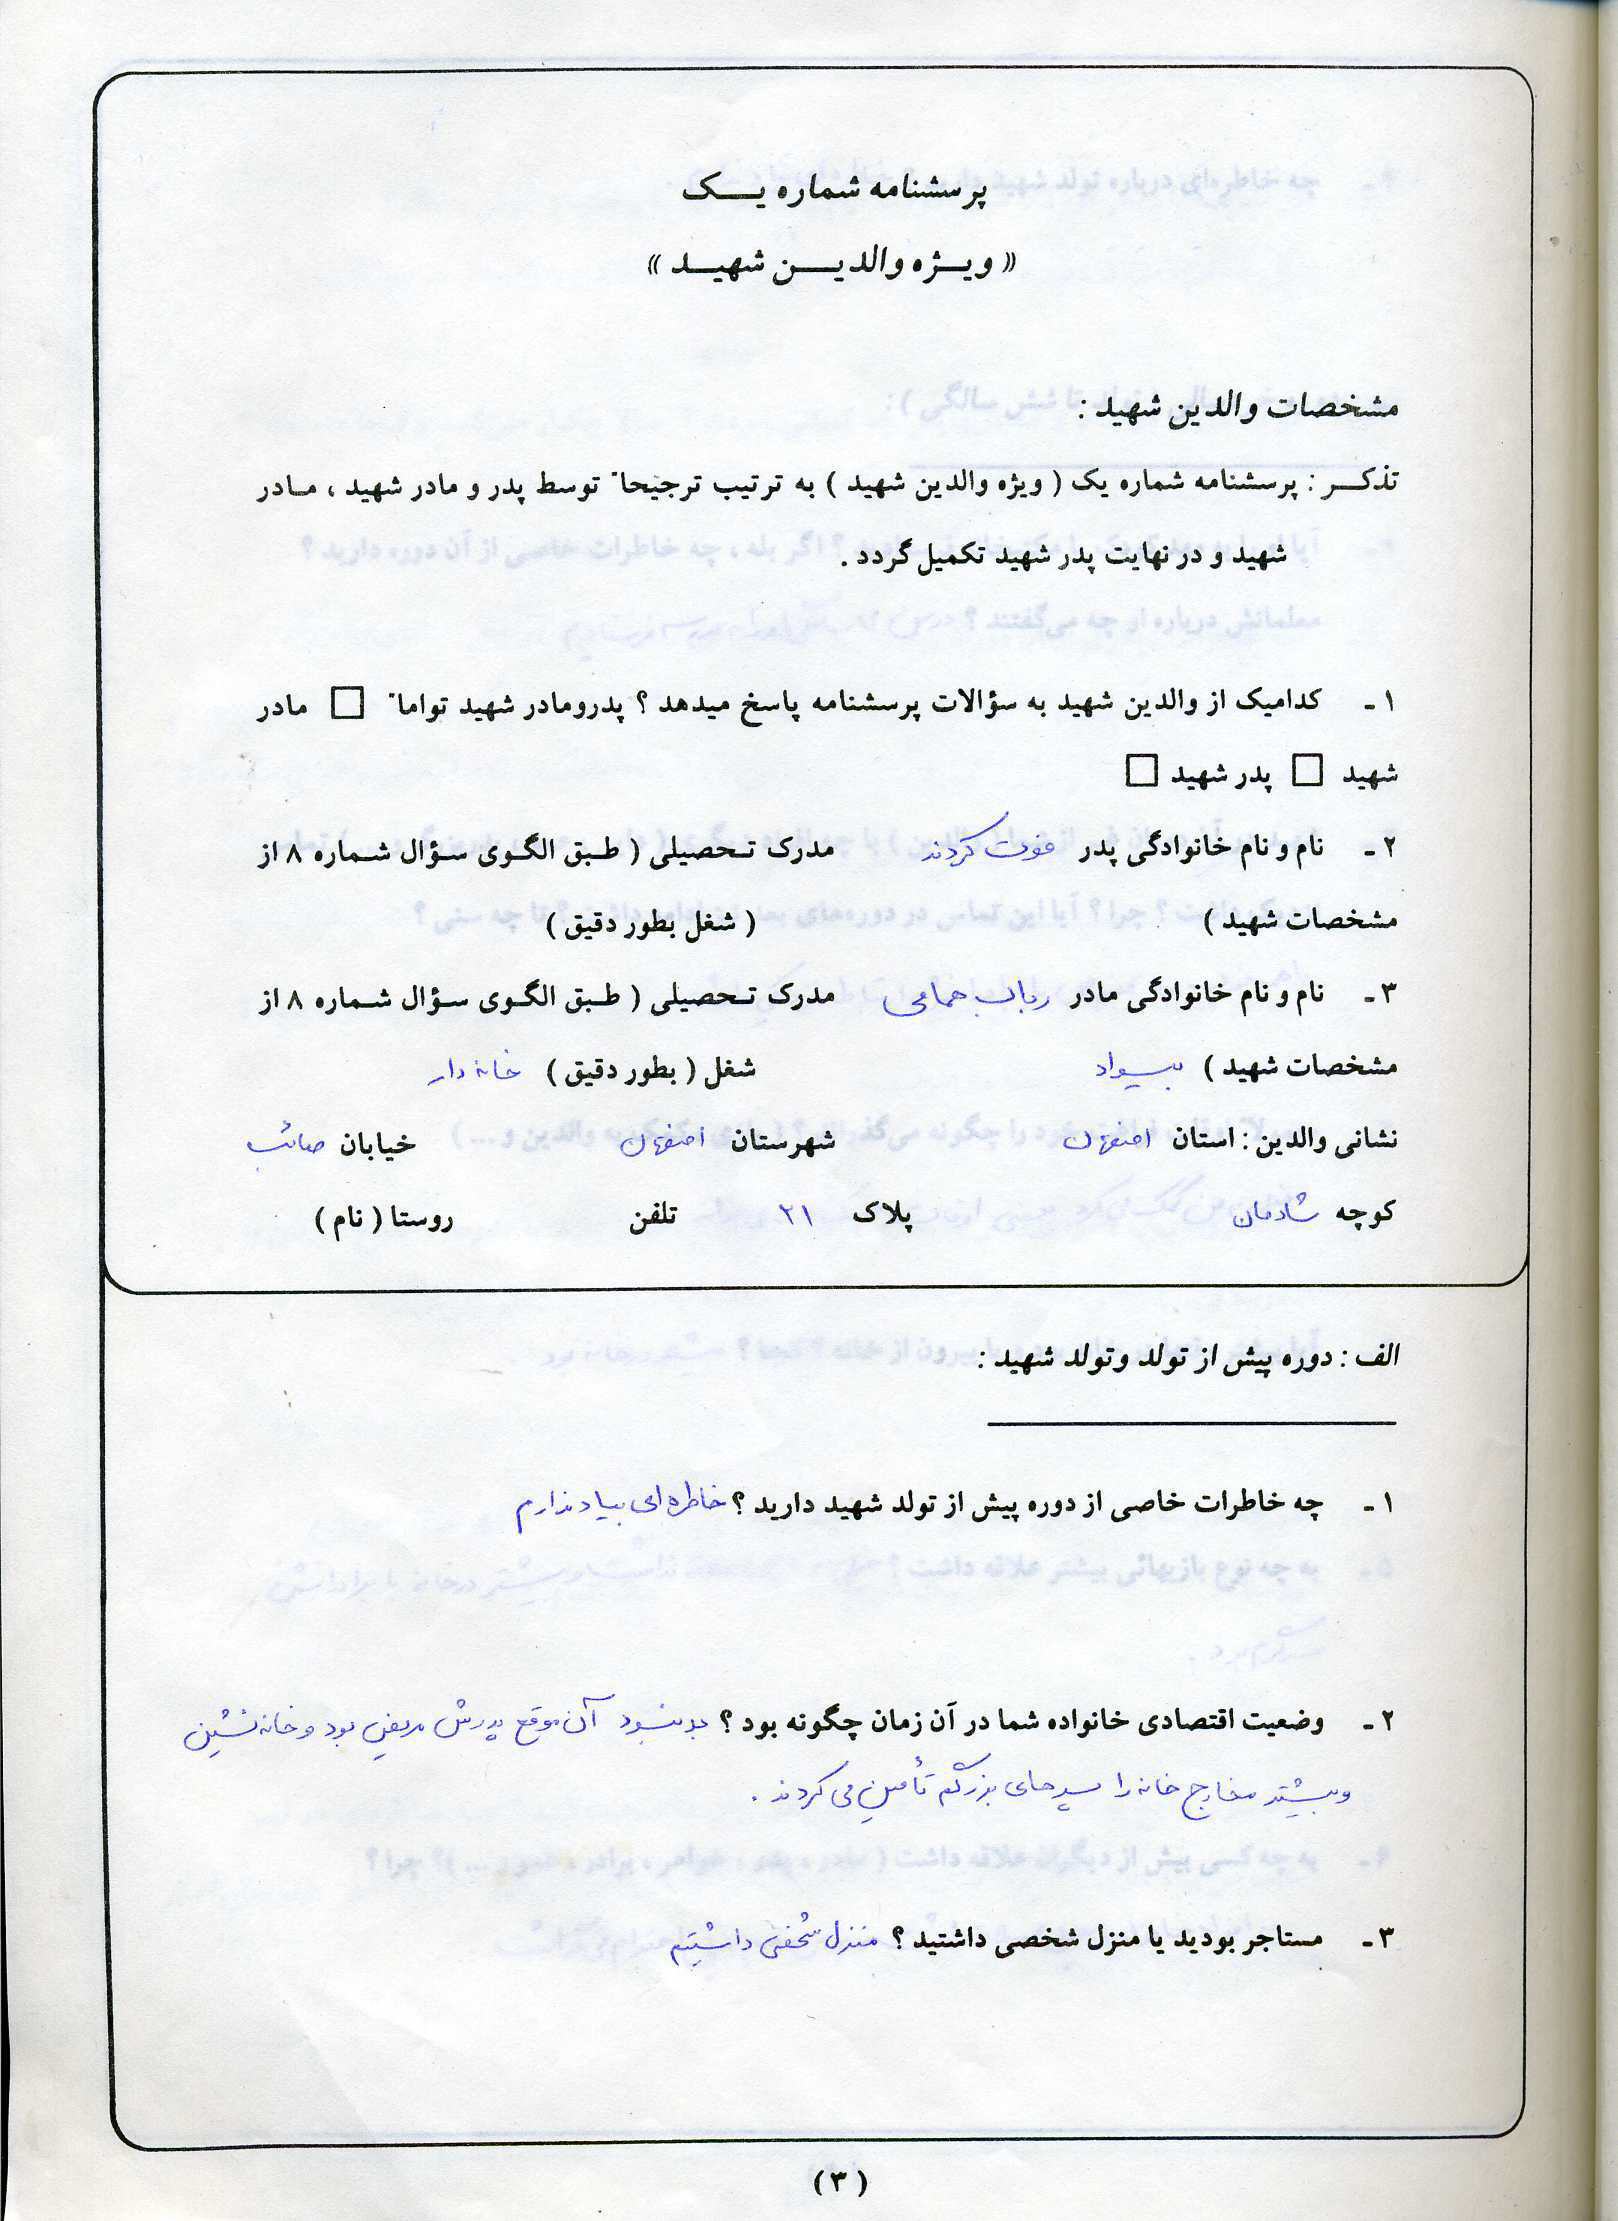 پرسشنامه شماره یـــک
« ویـژه والدیـــن شهیـد »
مشخصات والدین شهید :
تذکـــر : پرسشنامه شماره یک ( ویژه والدین شهید ) به ترتیب ترجیحاً توسط پدر و مادر شهید ، مـادر
شهید و در نهایت پدر شهید تکمیل گردد .
۱ - کدامیک از والدین شهید به سؤالات پرسشنامه پاسخ میدهد ؟ پدرومادر شهید تواماً □ مادر
شهید □ پدر شهید □
۲ - نام و نام خانوادگی پدر فوت کردند مدرک تـحصیلی ( طـبق الگـوی سـؤال شـماره ۸ از
مشخصات شهید ) ( شغل بطور دقیق )
۳ - نام و نام خانوادگی مادر رباب حمامی مدرک تـحصیلی ( طـبق الگـوی سـؤال شـماره ۸ از
مشخصات شهید ) بیسواد شغل ( بطور دقیق ) خانه دار
نشانی والدین : استان اصفهان شهرستان اصفهان خیابان صائب
کوچه شادمان پلاک ۲۱ تلفن روستا ( نام )
الف : دوره پیش از تولد وتولد شهید :
۱ - چه خاطرات خاصی از دوره پیش از تولد شهید دارید ؟ خاطره ای بیاد ندارم
۲ - وضعیت اقتصادی خانواده شما در آن زمان چگونه بود ؟ بد نبود آن موقع پدرش مریض بود و خانه نشین
و بیشتر مخارج خانه را پسرهای بزرگم تأمین می کردند .
۳ - مستاجر بودید یا منزل شخصی داشتید ؟ منزل شخصی داشتیم
( ۳ )